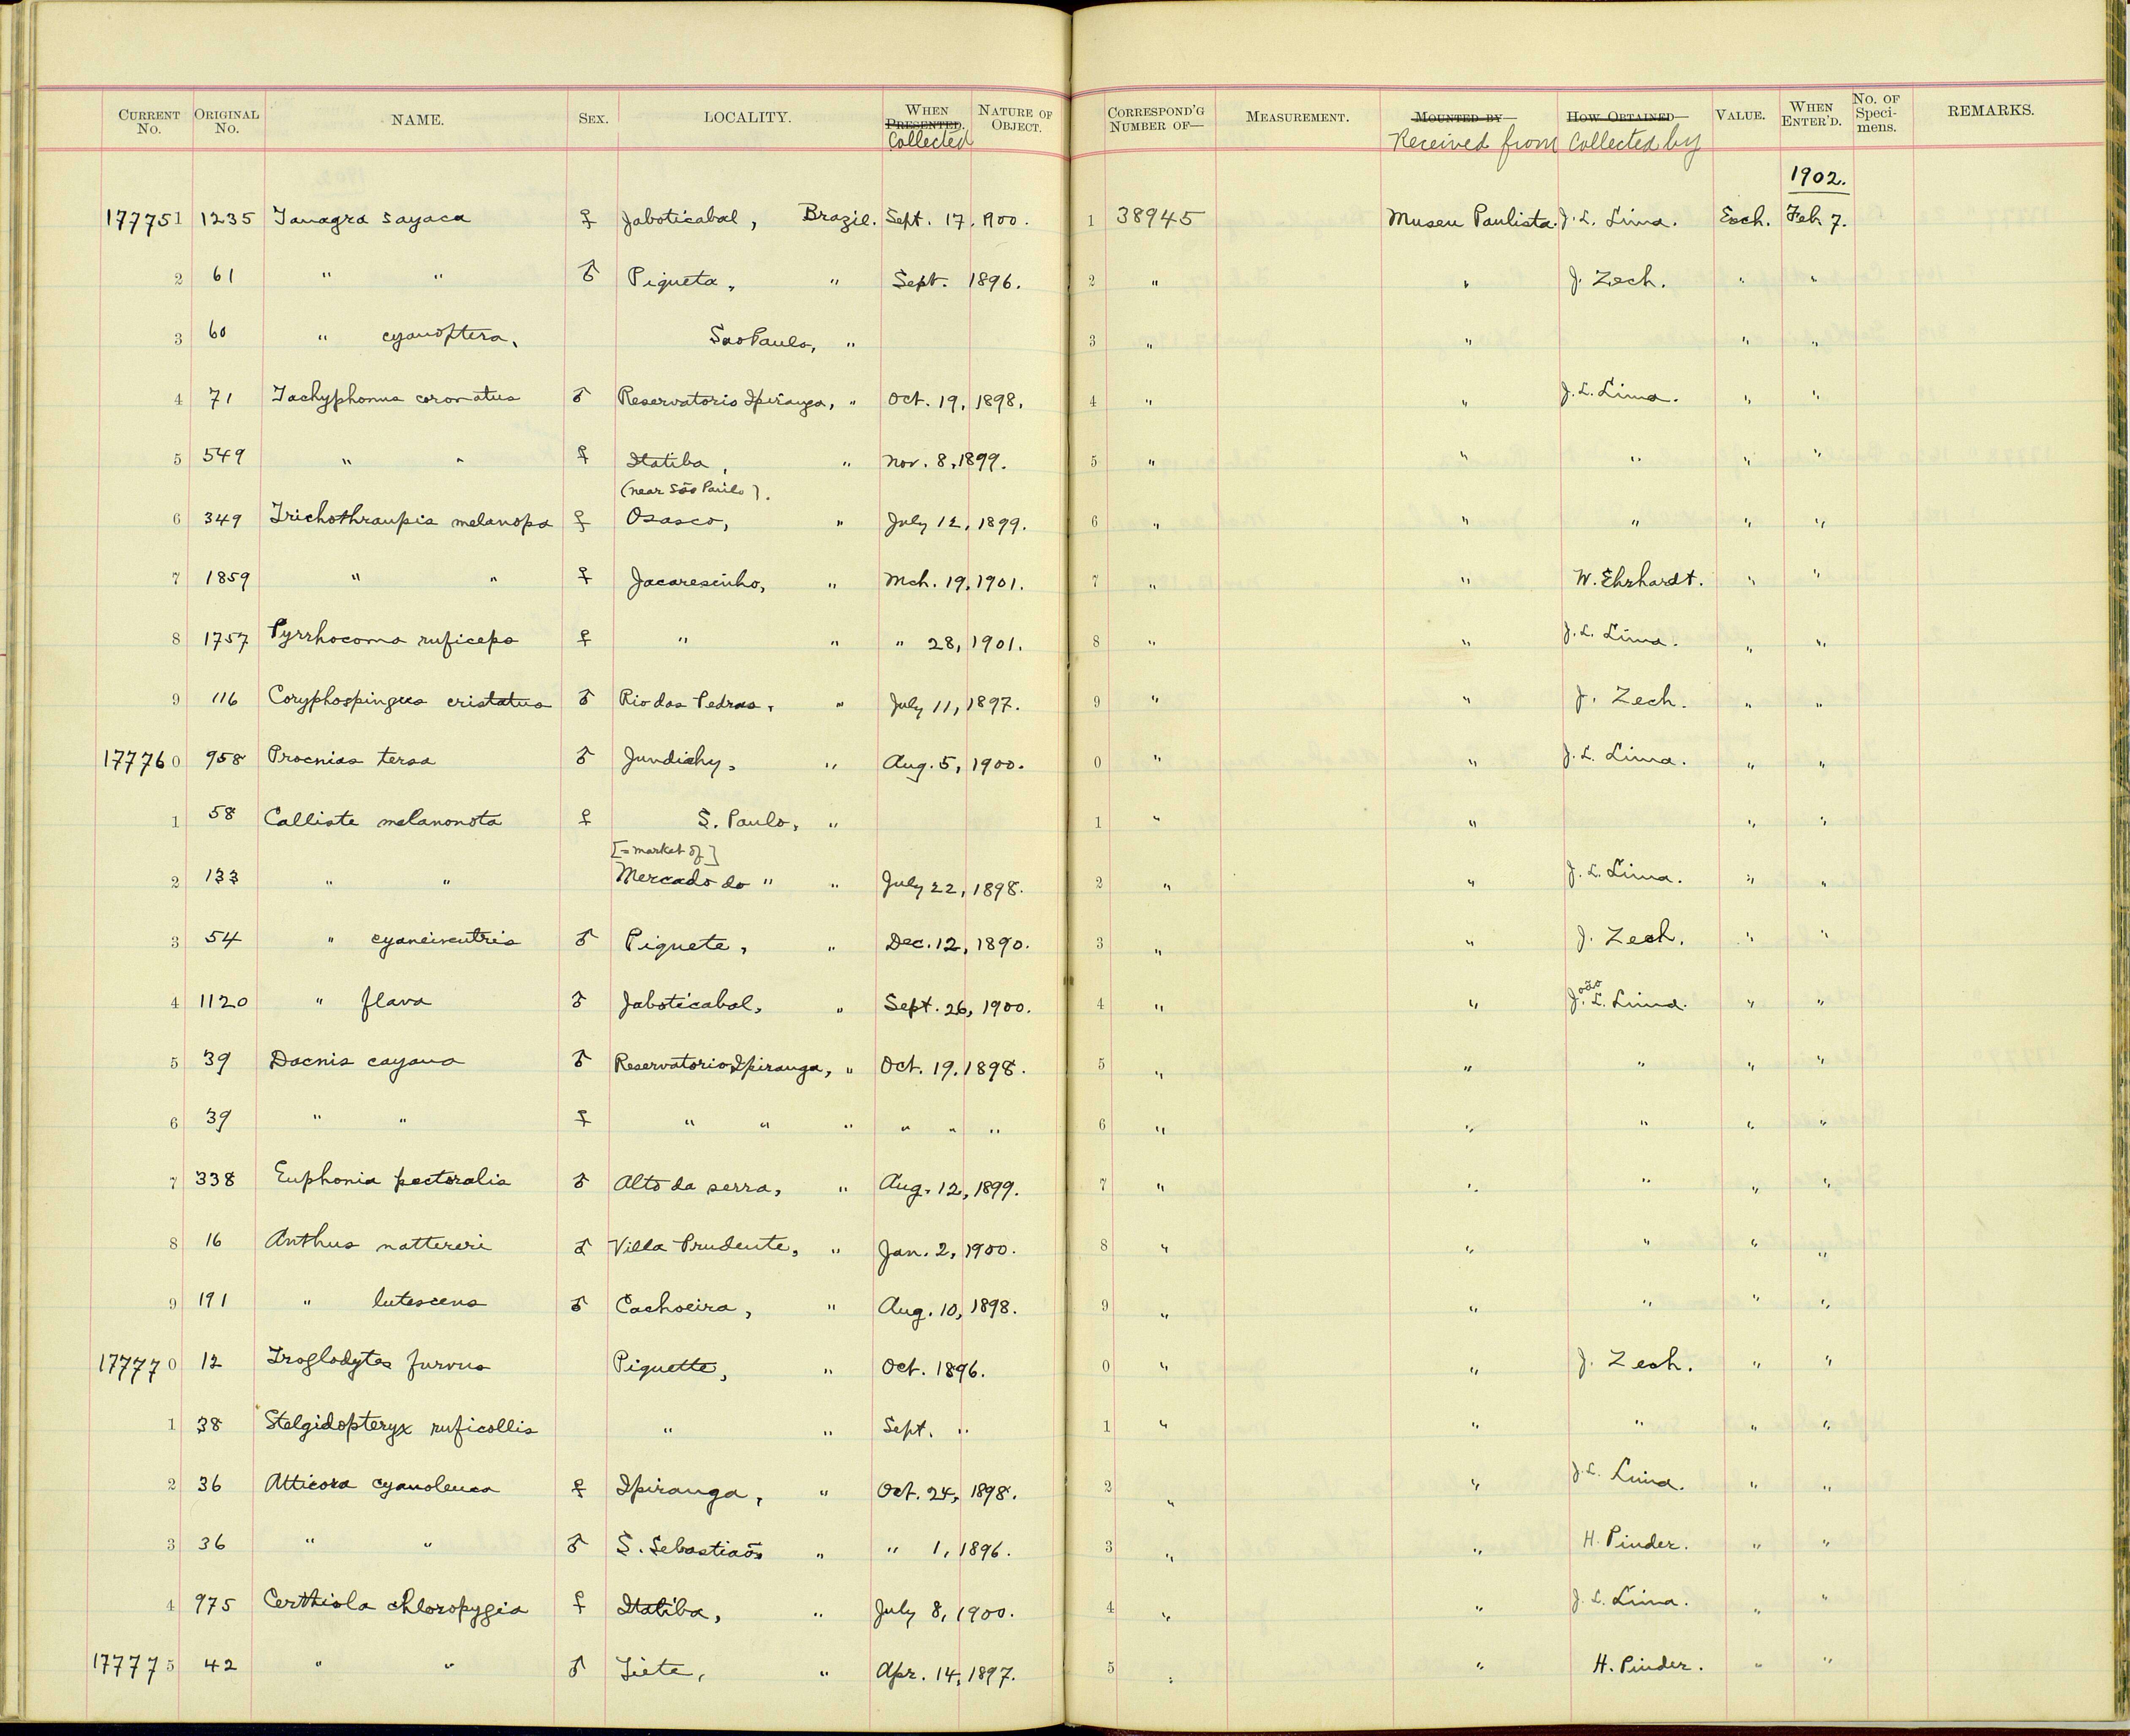 CURRENT No. ORIGINAL No. NAME. SEX. LOCALITY. WHEN PRESENTED. Collected NATURE OF OBJECT. CORRESPOND'G NUMBER OF— MEASUREMENT. MOUNTED BY— Received from HOW OBTAINED— Collected by VALUE. WHEN ENTER'D. No. OF Specimens. REMARKS.
1902.
177751 1235 Tanagra sayaca ♀ Jaboticabal, Brazil. Sept. 17. 1900. 1 38945 Museu Paulista. J. L. Lima. Exch. Feb 7.
2 61 " " ♂ Piqueta, " Sept. 1896. 2 " " J. Zech. " "
3 60 " cyanoptera, Sao Paulo, " 3 " " " "
4 71 Tachyphonus coronatus ♂ Reservatorio Ipiranga, " Oct. 19, 1898. 4 " " J. L. Lima. " "
5 549 " " ♀ Itatiba, " Nov. 8, 1899. 5 " " " " "
(near São Paulo).
6 349 Trichothraupis melanops ♀ Osasco, " July 12, 1899. 6 " " " " "
7 1859 " " ♀ Jacaresinho, " Mch. 19, 1901. 7 " " W. Ehrhardt. " "
8 1757 Pyrrhocoma ruficeps ♀ " " " 28, 1901. 8 " " J. L. Lima. " "
9 116 Coryphospingus cristatus ♂ Rio das Pedras, " July 11, 1897. 9 " " J. Zech. " "
177760 958 Procnias tersa ♂ Jundiahy, " Aug. 5, 1900. 0 " " J. L. Lima. " "
1 58 Calliste melanonota ♀ S. Paulo, " 1 " " " "
[= market of]
2 133 " " Mercado do " " July 22, 1898. 2 " " J. L. Lima. " "
3 54 " cyaneiventris ♂ Piquete, " Dec. 12, 1890. 3 " " J. Zech. " "
4 1120 " flava ♂ Jaboticabal, " Sept. 26, 1900. 4 " " João L. Lima. " "
5 39 Dacnis cayana ♂ Reservatorio Ipiranga, " Oct. 19. 1898. 5 " " " " "
6 39 " " ♀ " " " " " " 6 " " " " "
7 338 Euphonia pectoralis ♂ Alto da serra, " Aug. 12, 1899. 7 " " " " "
8 16 Anthus nattereri ♂ Villa Prudente, " Jan. 2, 1900. 8 " " " " "
9 191 " lutescens ♂ Cachoeira, " Aug. 10, 1898. 9 " " " " "
177770 12 Troglodytes furvus Piquette, " Oct. 1896. 0 " " J. Zech. " "
1 38 Stelgidopteryx ruficollis " " Sept. " 1 " " " " "
2 36 Atticora cyanoleuca ♀ Ipiranga, " Oct. 24, 1898. 2 " " J. L. Lima. " "
3 36 " " ♂ S. Sebastiaõ, " " 1, 1896. 3 " " H. Pinder. " "
4 975 Certhiola chloropygia ♀ Itatiba, " July 8, 1900. 4 " " J. L. Lima. " "
177775 42 " " ♂ Tiete, " Apr. 14, 1897. 5 " " H. Pinder. " "